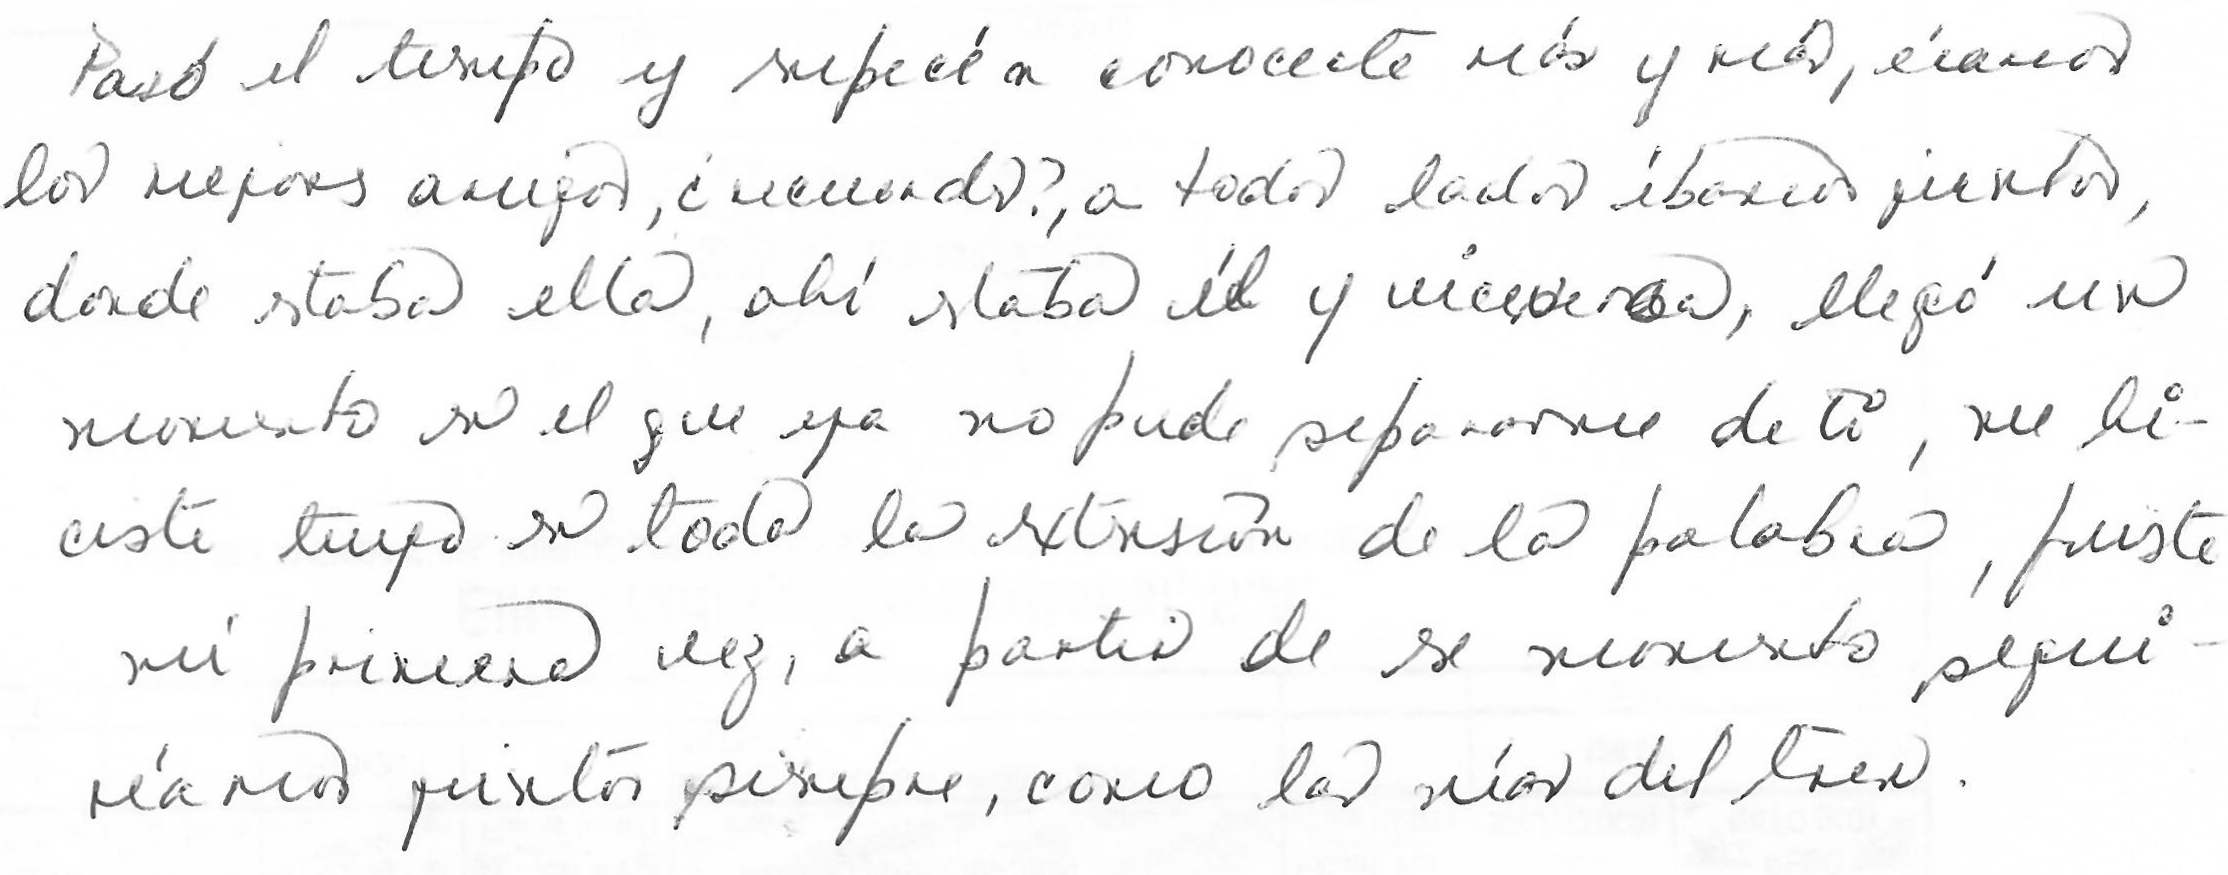 Pasó el tiempo y empecé a conocerte más y más, éramos
los mejores amigos, ¿recuerdas?, a todos lados íbamos juntos,
donde estaba ella, ahí estaba él y viceversa, llegó un
momento en el que ya no pude separarme de ti, me hi-
ciste tuyo en toda la extensión de la palabra, fuiste
mi primera vez, a partir de ese momento segui-
ríamos juntos siempre, como las vías del tren.